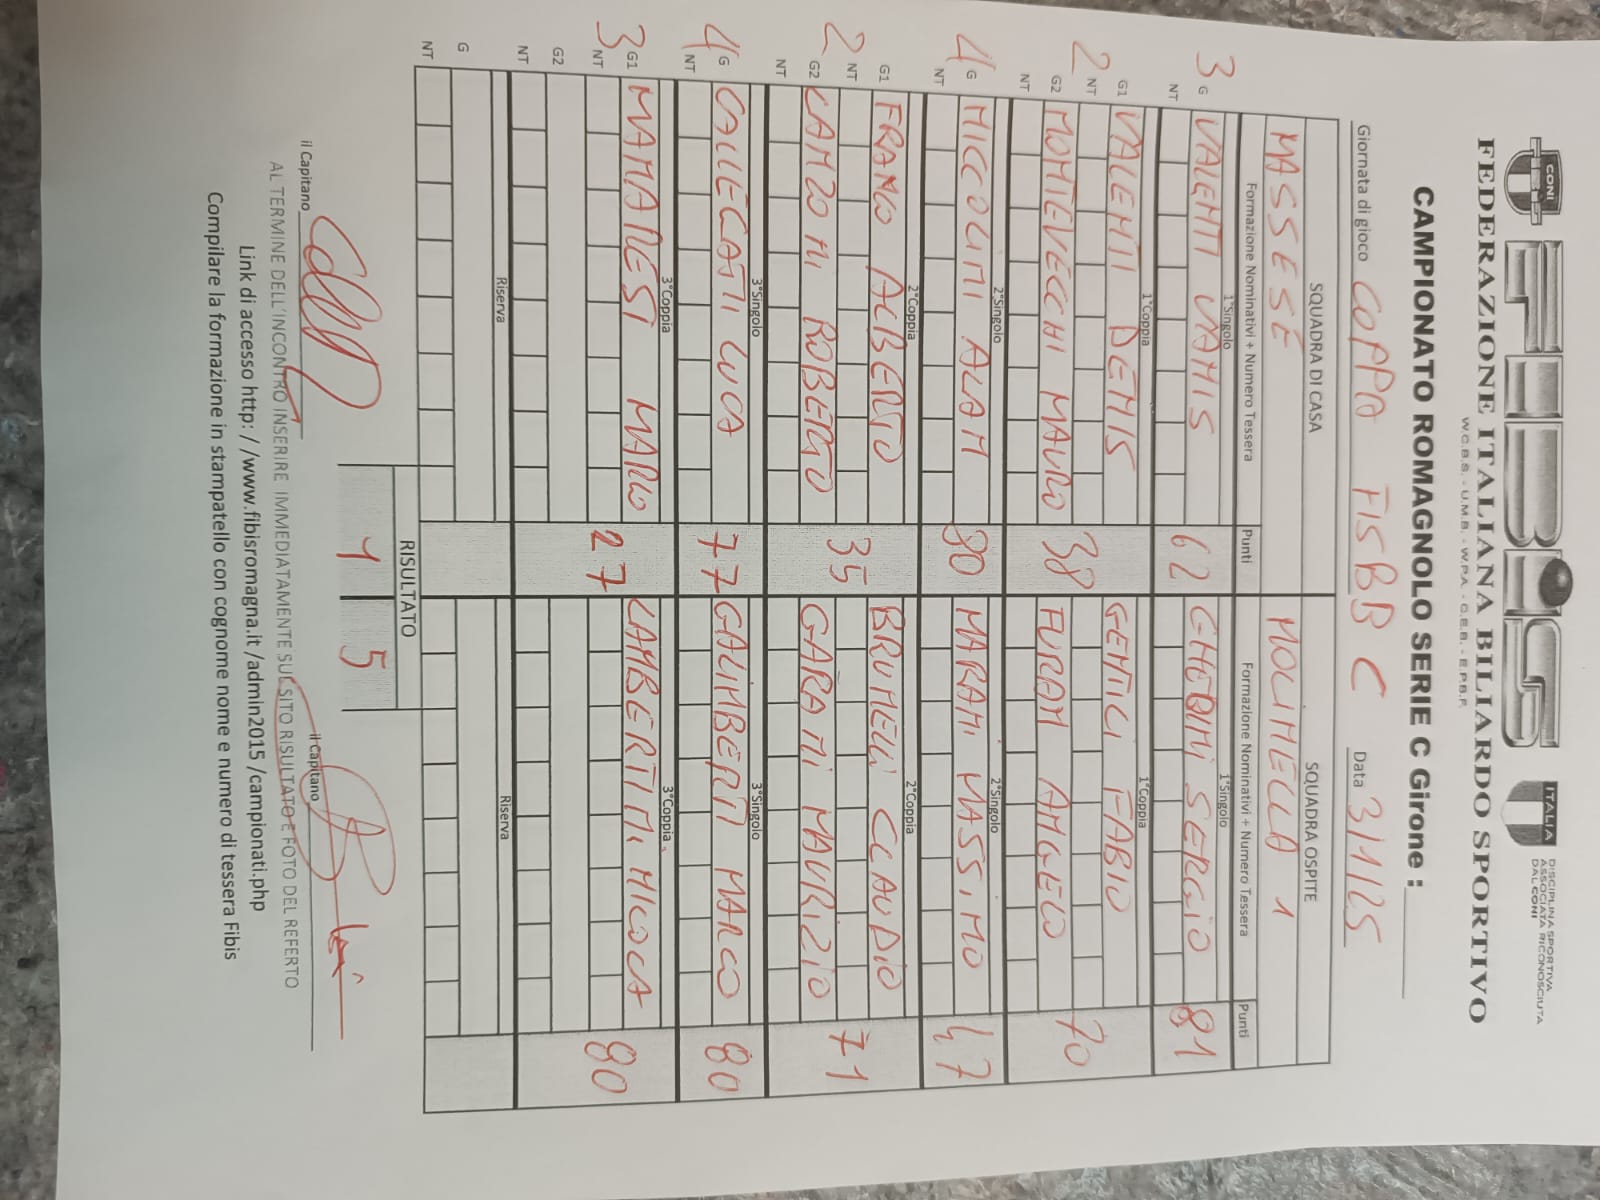 CONI
FIBiS
ITALIA
DISCIPLINA SPORTIVA
ASSOCIATA RICONOSCIUTA
DAL CONI
FEDERAZIONE ITALIANA BILIARDO SPORTIVO
W.C.B.S. - U.M.B. - W.P.A. - C.E.B. - E.P.B.F.
CAMPIONATO ROMAGNOLO SERIE C Girone :
Giornata di gioco COPPA FISBB C Data 31/1/25
SQUADRA DI CASA SQUADRA OSPITE
MASSESE MOLINELLA 1
Formazione Nominativi + Numero Tessera Punti Formazione Nominativi + Numero Tessera Punti
1°Singolo 1°Singolo
3 G VALENTI VANIS 62 GHERINI SERGIO 81
NT
1°Coppia 1°Coppia
G1 VALENTI DENIS GENTILI FABIO
2 NT 38 70
G2 MONTEVECCHI MAURO FURAN ANGELO
NT
2°Singolo 2°Singolo
4 G MICCOLINI ALAN 80 MARANI MASSIMO 47
NT
2°Coppia 2°Coppia
G1 FRANCO ALBERTO BRUNELLI CLAUDIO
2 NT 35 71
G2 LANZONI ROBERTO GARANI MAURIZIO
NT
3°Singolo 3°Singolo
4 G CALLEGATI LUCA 77 GALIMBERTI MARCO 80
NT
3°Coppia 3°Coppia
3 G1 MAMBELLI MARIO LAMBERTINI NICOLA
NT 27 80
G2
NT
Riserva Riserva
G
NT
RISULTATO
1 5
il Capitano il Capitano
AL TERMINE DELL'INCONTRO INSERIRE IMMEDIATAMENTE SUL SITO RISULTATO E FOTO DEL REFERTO
Link di accesso http: / /www.fibisromagna.it /admin2015 /campionati.php
Compilare la formazione in stampatello con cognome nome e numero di tessera Fibis